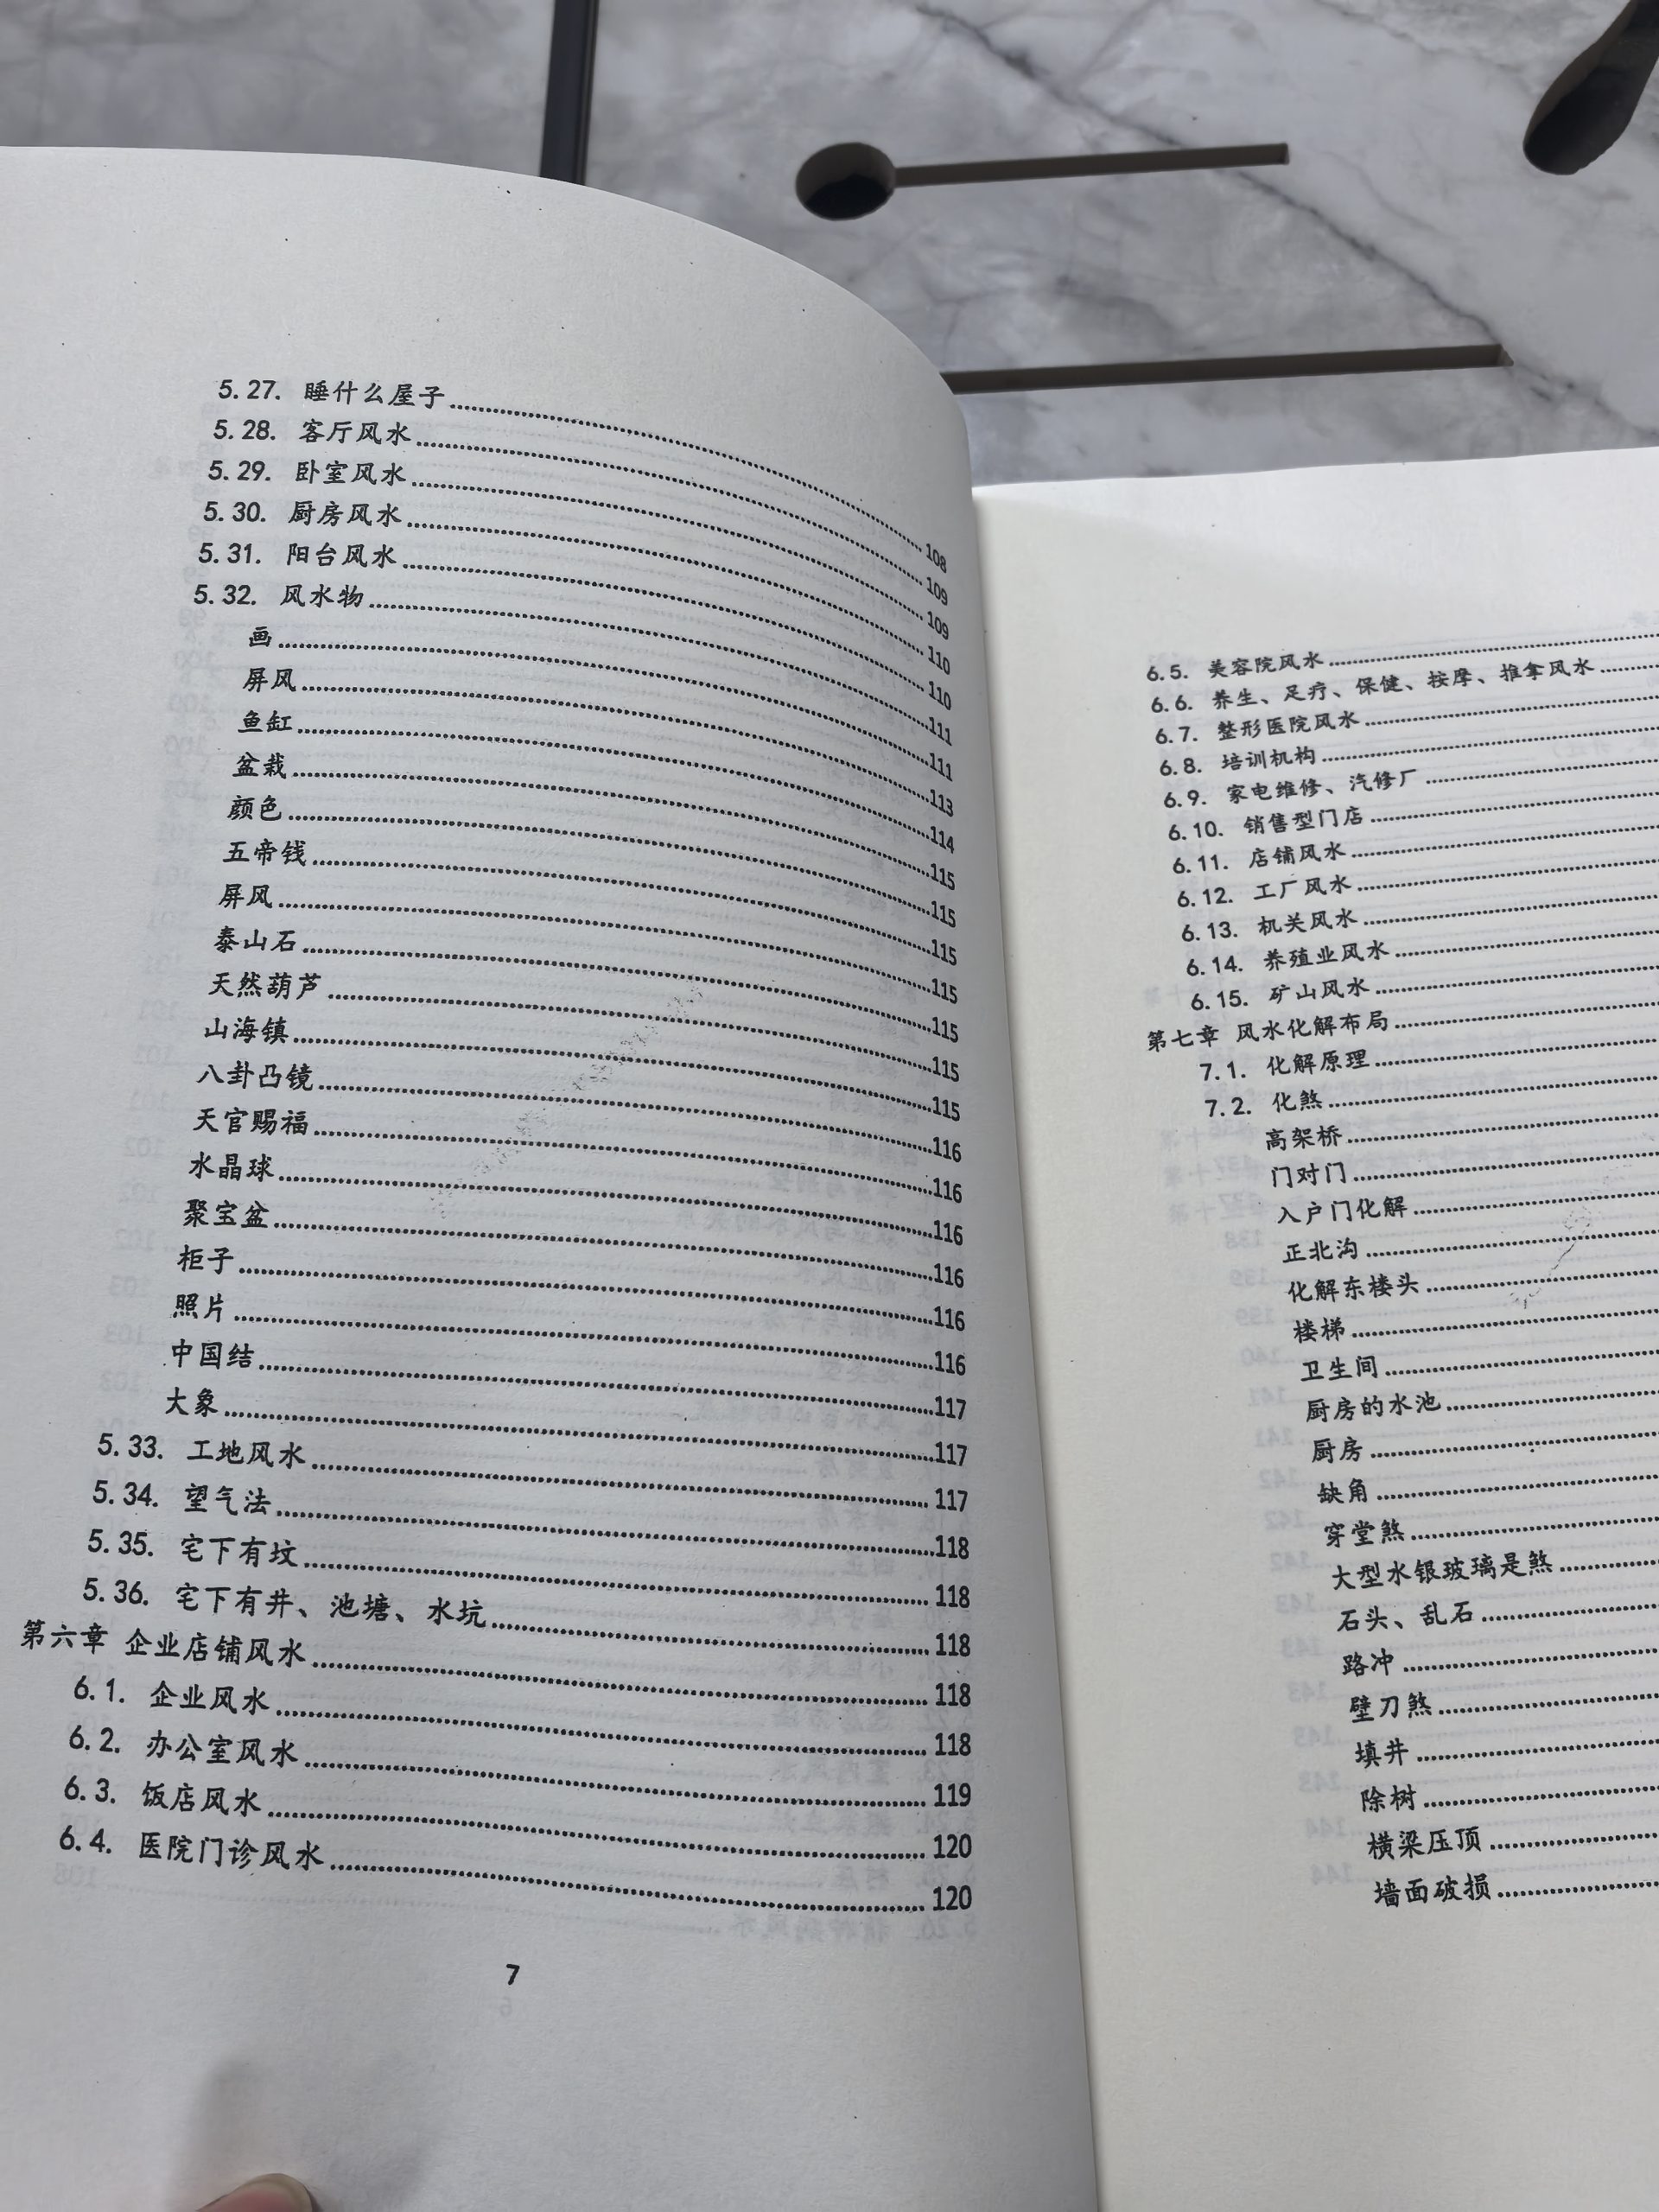 5.27. 睡什么屋子 108
5.28. 客厅风水 109
5.29. 卧室风水 109
5.30. 厨房风水 110
5.31. 阳台风水 110
5.32. 风水物 111
画 111
屏风 113
鱼缸 114
盆栽 115
颜色 115
五帝钱 115
屏风 115
泰山石 115
天然葫芦 115
山海镇 115
八卦凸镜 116
天官赐福 116
水晶球 116
聚宝盆 116
柜子 116
照片 116
中国结 117
大象 117
5.33. 工地风水 117
5.34. 望气法 118
5.35. 宅下有坟 118
5.36. 宅下有井、池塘、水坑 118
第六章 企业店铺风水 118
6.1. 企业风水 118
6.2. 办公室风水 119
6.3. 饭店风水 120
6.4. 医院门诊风水 120
7
6.5. 美容院风水
6.6. 养生、足疗、保健、按摩、推拿风水
6.7. 整形医院风水
6.8. 培训机构
6.9. 家电维修、汽修厂
6.10. 销售型门店
6.11. 店铺风水
6.12. 工厂风水
6.13. 机关风水
6.14. 养殖业风水
6.15. 矿山风水
第七章 风水化解布局
7.1. 化解原理
7.2. 化煞
高架桥
门对门
入户门化解
正北沟
化解东楼头
楼梯
卫生间
厨房的水池
厨房
缺角
穿堂煞
大型水银玻璃是煞
石头、乱石
路冲
壁刀煞
填井
除树
横梁压顶
墙面破损